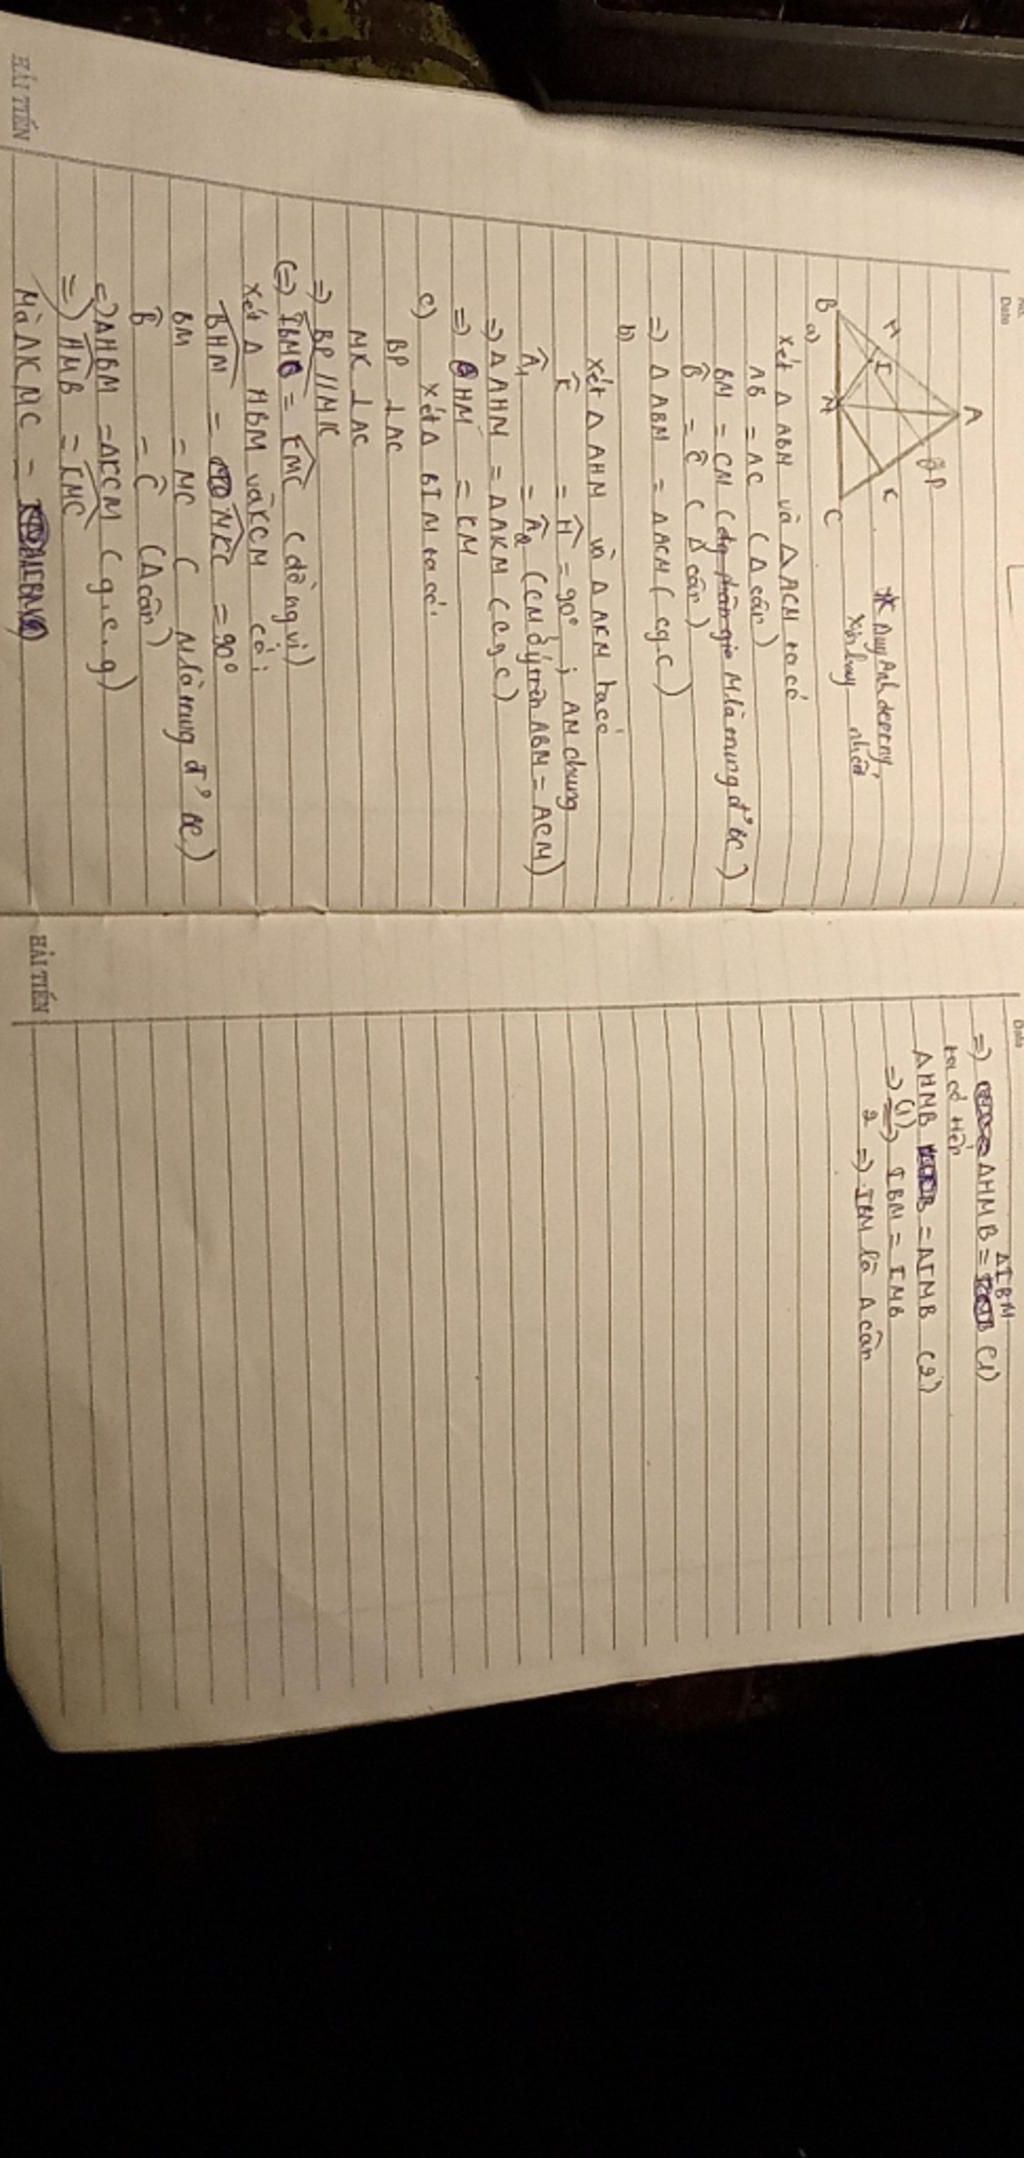 Date
A
H
I
P
K
B
M
C
* Duy Anh deptrny,
xin hay nhất
a)
xét Δ ABM và Δ ACM ta có
AB = AC (Δ cân)
BM = CM (M là trung đ' BC)
B̂ = Ĉ (Δ cân)
=) Δ ABM = Δ ACM (cg.c)
b)
xét Δ AHM và Δ AKM ta có
K̂ = Ĥ = 90° ; AM chung
Â1 = Â2 (CM ở ý trên ABM = ACM)
=) Δ AHM = Δ AKM (c g c)
=) HM = KM
c) xét Δ BIM ta có:
BP ⊥ AC
MK ⊥ AC
=) BP // MK
(=) IBM = KMC (đồng vị)
xét Δ HBM và KCM có:
BHM = MKC = 90°
BM = MC (M là trung đ' BC)
B̂ = Ĉ (Δ cân)
=) ΔHBM = ΔKCM (g.c.g)
=) HMB = KMC
Mà ΔKMC =
HẢI TIẾN
Date
ΔIBM
=) ΔHMB = (1)
ta có tiếp
ΔHMB = ΔIMB (2)
=) (1) =) IBM = IMB
2 =) IBM là Δ cân
HẢI TIẾN